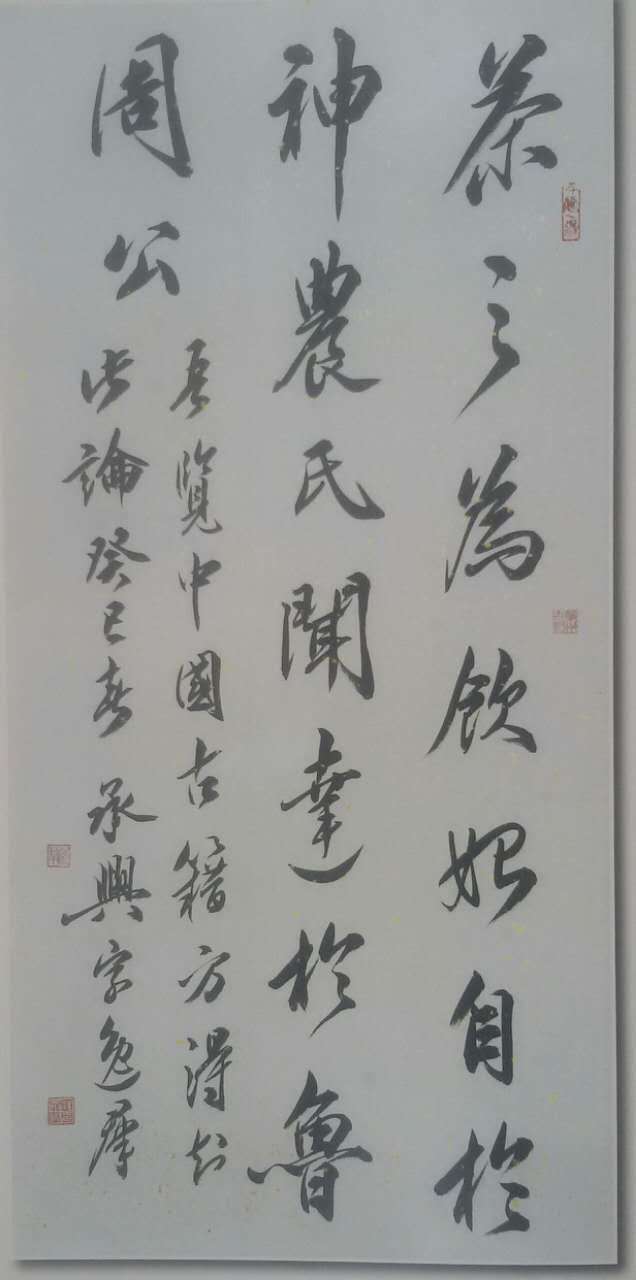 茶之為飲始自於
神農氏聞達於魯
周公
吾覽中國古籍方得知
此論癸巳春 承興字逸群